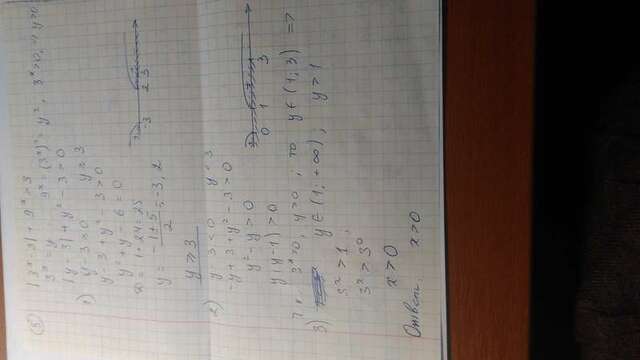 5) |3ˣ - 3| + 9ˣ > 3
3ˣ = y 9ˣ = (3ˣ)² = y², 3ˣ > 0, => y > 0
|y - 3| + y² - 3 > 0
1) y - 3 ≥ 0 y ≥ 3
y - 3 + y² - 3 > 0
y² + y - 6 = 0
D = 1 + 24 = 25
y = (-1 ± 5)/2 = -3, 2
-3 2 3
y ≥ 3
2) y - 3 < 0 y < 3
-y + 3 + y² - 3 > 0
y² - y > 0
y(y - 1) > 0
0 1 3
Т.к. 3ˣ > 0, y > 0, то y ∈ (1; 3) =>
3) y ∈ (1; +∞), y > 1
3ˣ > 1,
3ˣ > 3⁰
x > 0
Ответ: x > 0